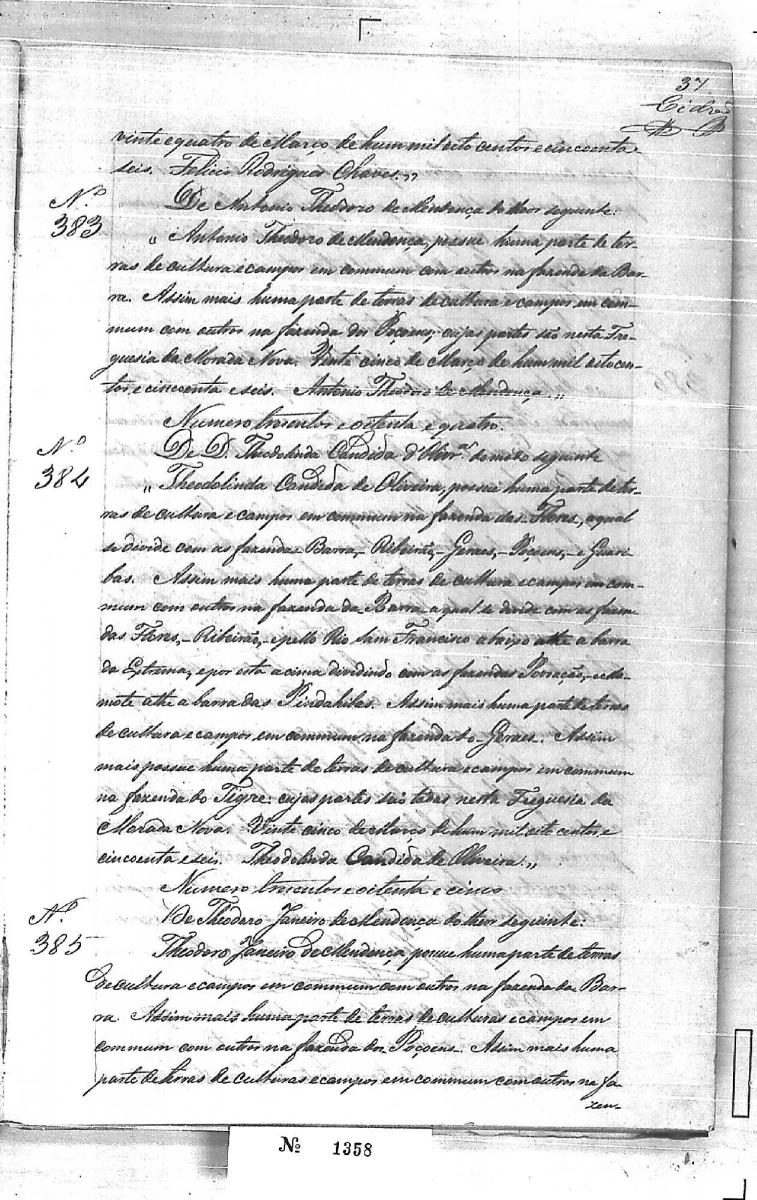 37
vinte e quatro de Março de hum mil eito centos e cincoenta e
seis. Felicio Rodrigues Chaves,,
Nº
383
De Antonio Theodoro de Mendonça do theor seguinte:
„ Antonio Theodoro de Mendonça, possue huma parte de ter-
ras de cultura e campos em commum com outros na fazenda da Bar-
ra. Assim mais huma parte de terras de cultura e campos em com-
mum com outros na fazenda dos Poçoens, cujas partes são nesta Fre-
guesia da Morada Nova. Vinte cinco de Março de hum mil eito cen-
tos e cincoenta e seis. Antonio Theodoro de Mendonça,,
Numero trescentos e oitenta e quatro.
Nº
384
De D. Theodolinda Candida d'Olivrª do modo seguinte
„ Theodolinda Candida de Oliveira, possue huma parte de ter-
ras de cultura e campos em commum na fazenda das Flores, a qual
se divide com as fazendas Barra,- Ribeirão,- Geraes,- Poçoens,- e Guari-
bas. Assim mais huma parte de terras de cultura e campos em com-
mum com outros na fazenda da Barra a qual se divide com as fazen-
das Flores,- Ribeirão,- e pello Rio Sam Francisco abaixo athe a barra
da Extrema, e por esta acima dividindo com as fazendas
athe a barra das Pindahibas. Assim mais huma parte de terras
de cultura e campos em commum na fazenda do - Geraes. Assim
mais possue huma parte de terras de cultura e campos em commum
na fazenda do Tigre: cujas partes são todas nesta Freguesia da
Morada Nova. Vinte cinco de Março de hum mil eito centos e
cincoenta e seis. Theodolinda Candida de Oliveira.,,
Numero trescentos e oitenta e cinco
Nº
385
De Theodoro Janeiro de Mendonça do theor seguinte:
Theodoro Janeiro de Mendonça, possue huma parte de terras
de cultura e campos em commum com outros na fazenda da Bar-
ra. Assim mais huma parte de terras de culturas e campos em
commum com outros na fazenda dos Poçoens- Assim mais huma
parte de terras de culturas e campos em commum com outros na fa
zen-
Nº 1358